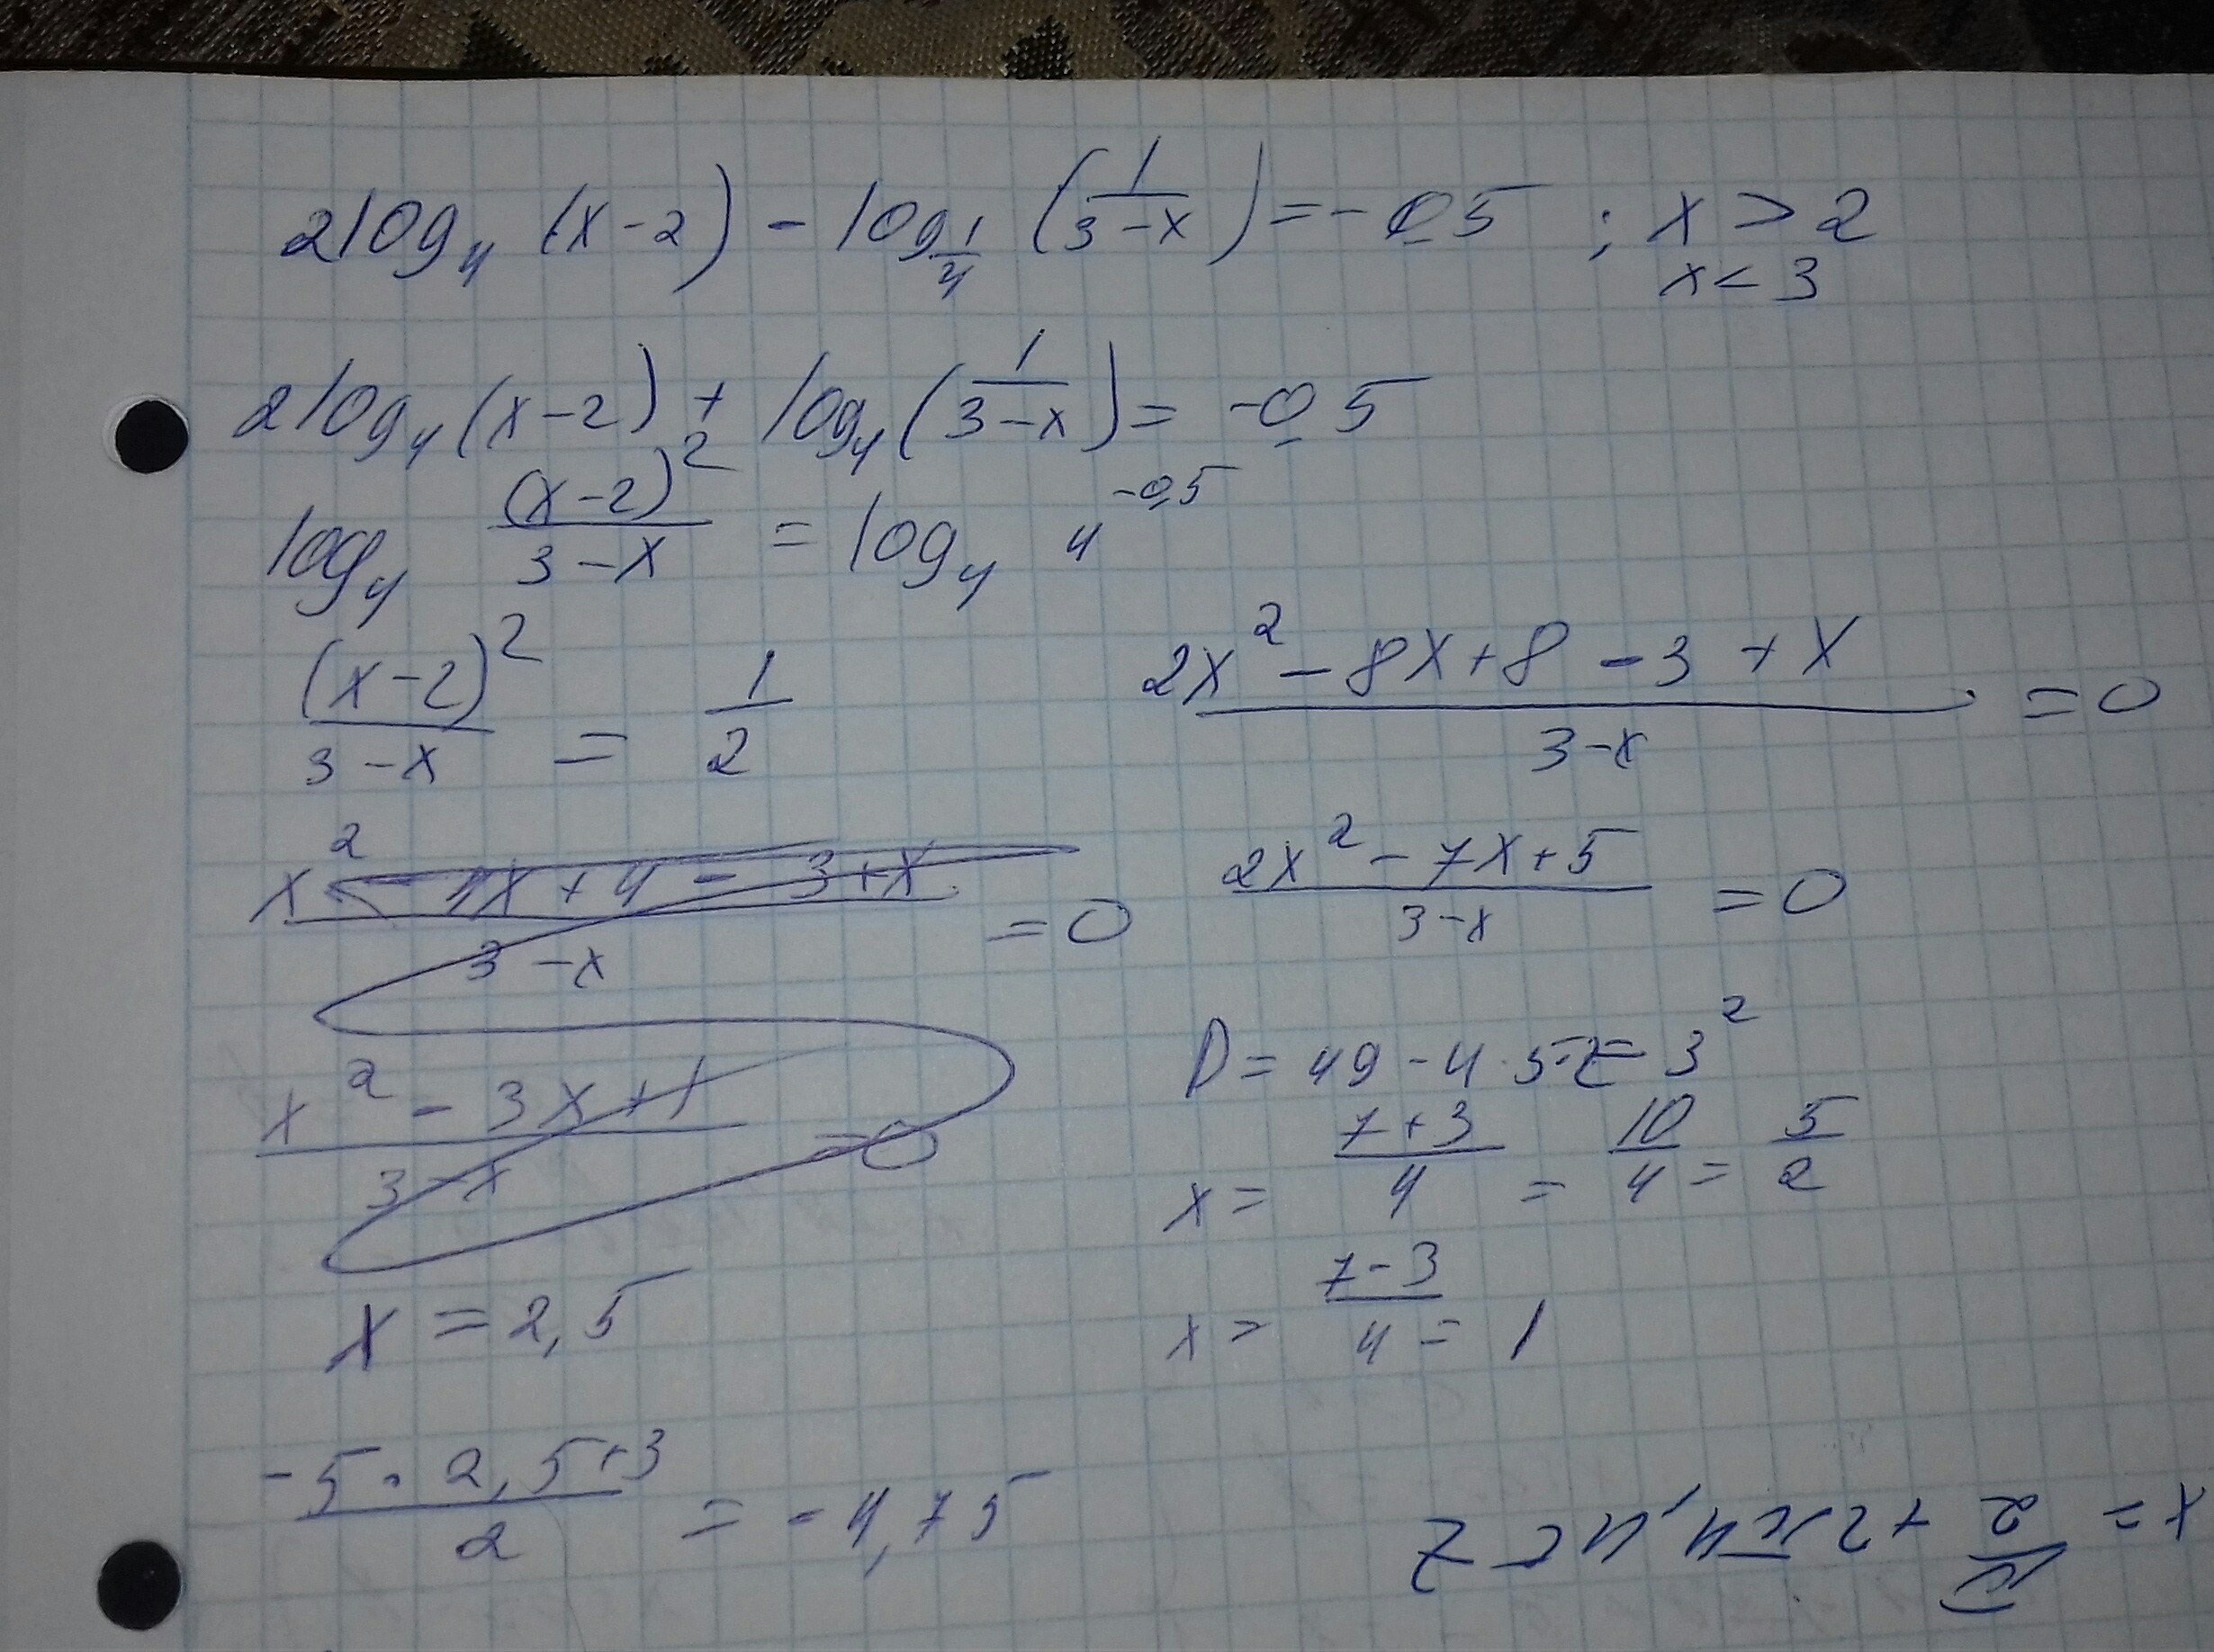 2log₄(x-2) - log_{1/4}(1/(3-x)) = -0,5 ; x > 2
x < 3
2log₄(x-2) + log₄(1/(3-x)) = -0,5
log₄ (x-2)²/(3-x) = log₄ 4^{-0,5}
(x-2)²/(3-x) = 1/2
(x² - 4x + 4 - 3 + x)/(3-x) = 0
(x² - 3x + 1)/(3-x) = 0
x = 2,5
(-5 · 2,5 + 3)/2 = -4,75
(2x² - 8x + 8 - 3 + x)/(3-x) = 0
(2x² - 7x + 5)/(3-x) = 0
D = 49 - 4·5·2 = 3²
x = (7+3)/4 = 10/4 = 5/2
x = (7-3)/4 = 1